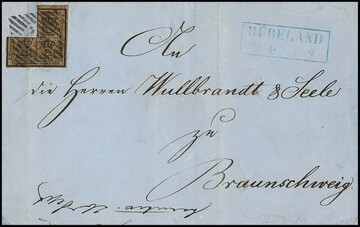 RÜBELAND
An
die Herren Wullbrandt & Seele
zu
Braunschweig